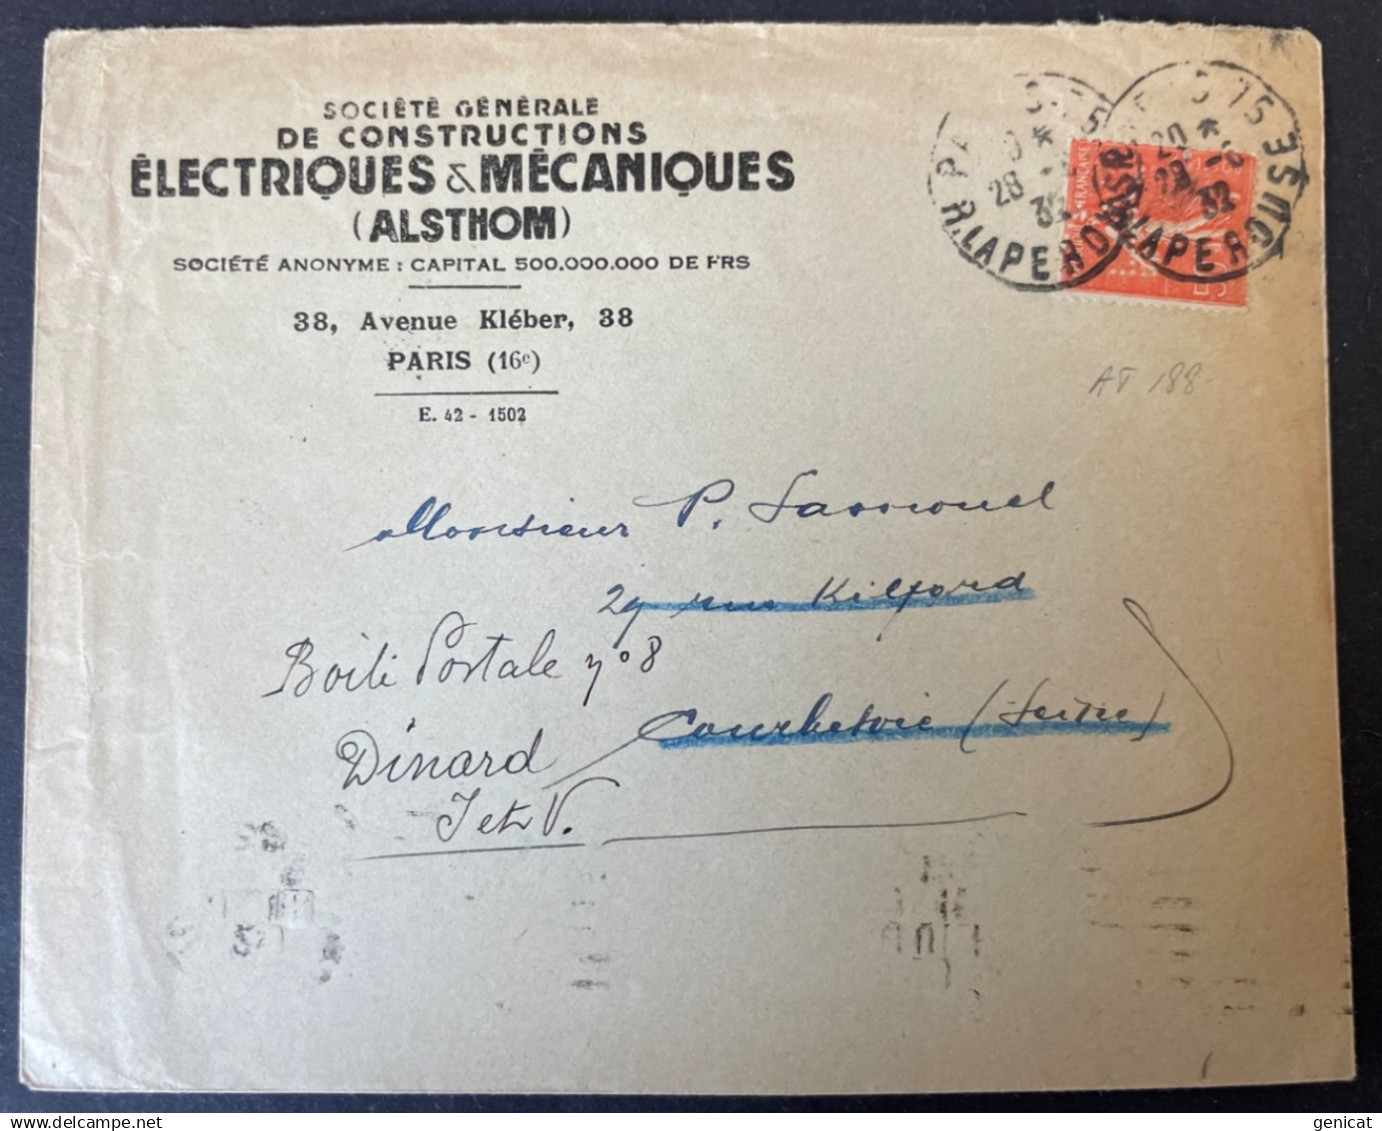 SOCIÉTÉ GÉNÉRALE
DE CONSTRUCTIONS
ÉLECTRIQUES & MÉCANIQUES
(ALSTHOM)
SOCIÉTÉ ANONYME : CAPITAL 500.000.000 DE FRS
38, Avenue Kléber, 38
PARIS (16e)
E. 42 - 1502
R. LAPEROUSE
28
32
75
LAPEROUSE
32
AT 188
Monsieur P. Lassouel
29 rue Kilford
Boite Postale no 8
Courbevoie (Seine)
Dinard
I et V.
genicat